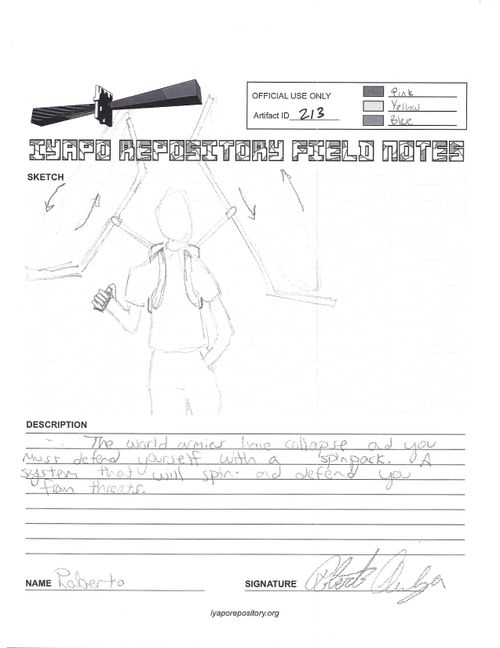 OFFICIAL USE ONLY
Artifact ID 213
Pink
Yellow
Blue
IYAPO REPOSITORY FIELD NOTES
SKETCH
DESCRIPTION
The world armies collapse and you
must defend yourself with a spinpack. A
system that will spin and defend you
from threats.
NAME Roberto
SIGNATURE
iyaporepository.org